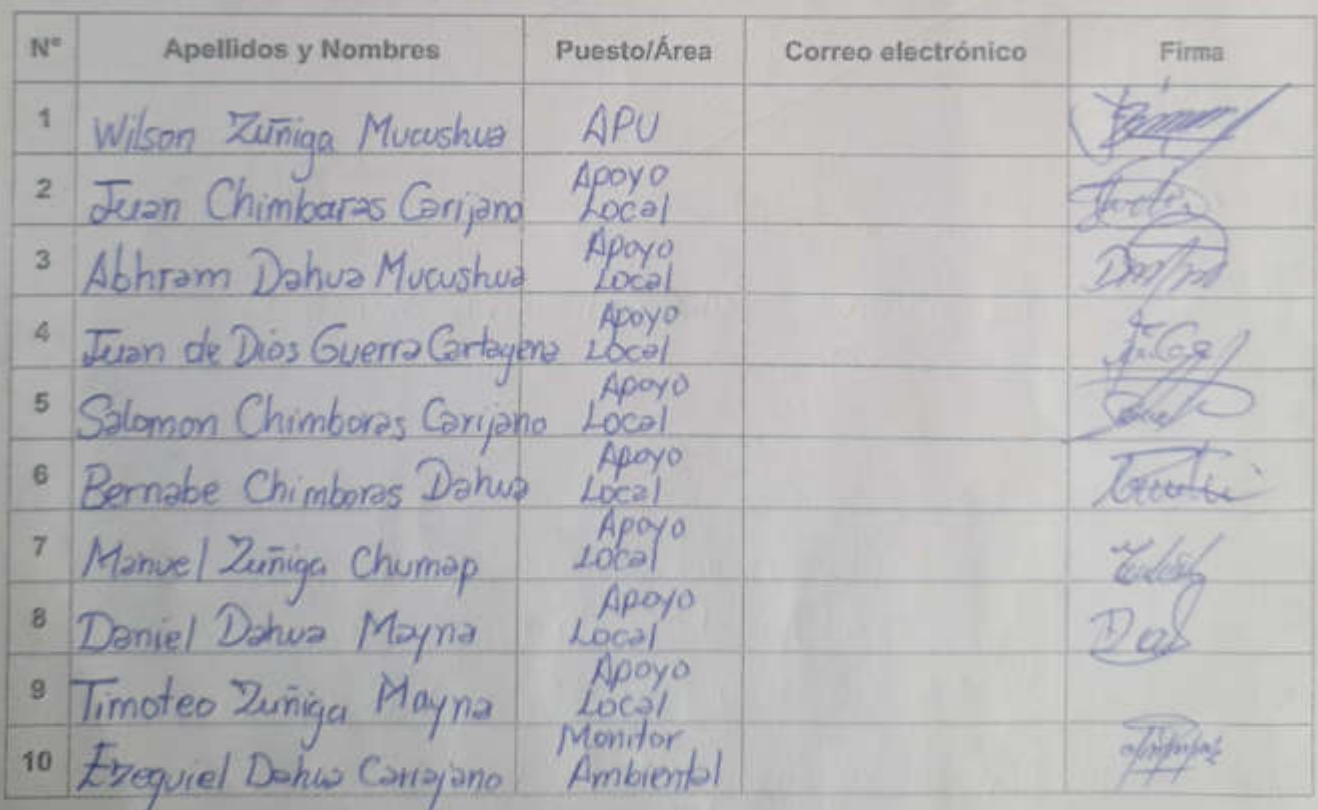 N° Apellidos y Nombres Puesto/Área Correo electrónico Firma
1 Wilson Zuñiga Mucushua APU
2 Juan Chimboras Carijano Apoyo Local
3 Abhram Dahua Mucushua Apoyo Local
4 Juan de Dios Guerra Cartagena Apoyo Local
5 Salomon Chimboras Carijano Apoyo Local
6 Bernabe Chimboras Dahua Apoyo Local
7 Manuel Zuñiga Chumap Apoyo Local
8 Daniel Dahua Mayna Apoyo Local
9 Timoteo Zuñiga Mayna Apoyo Local
10 Ezequiel Dahua Carrajano Monitor Ambiental